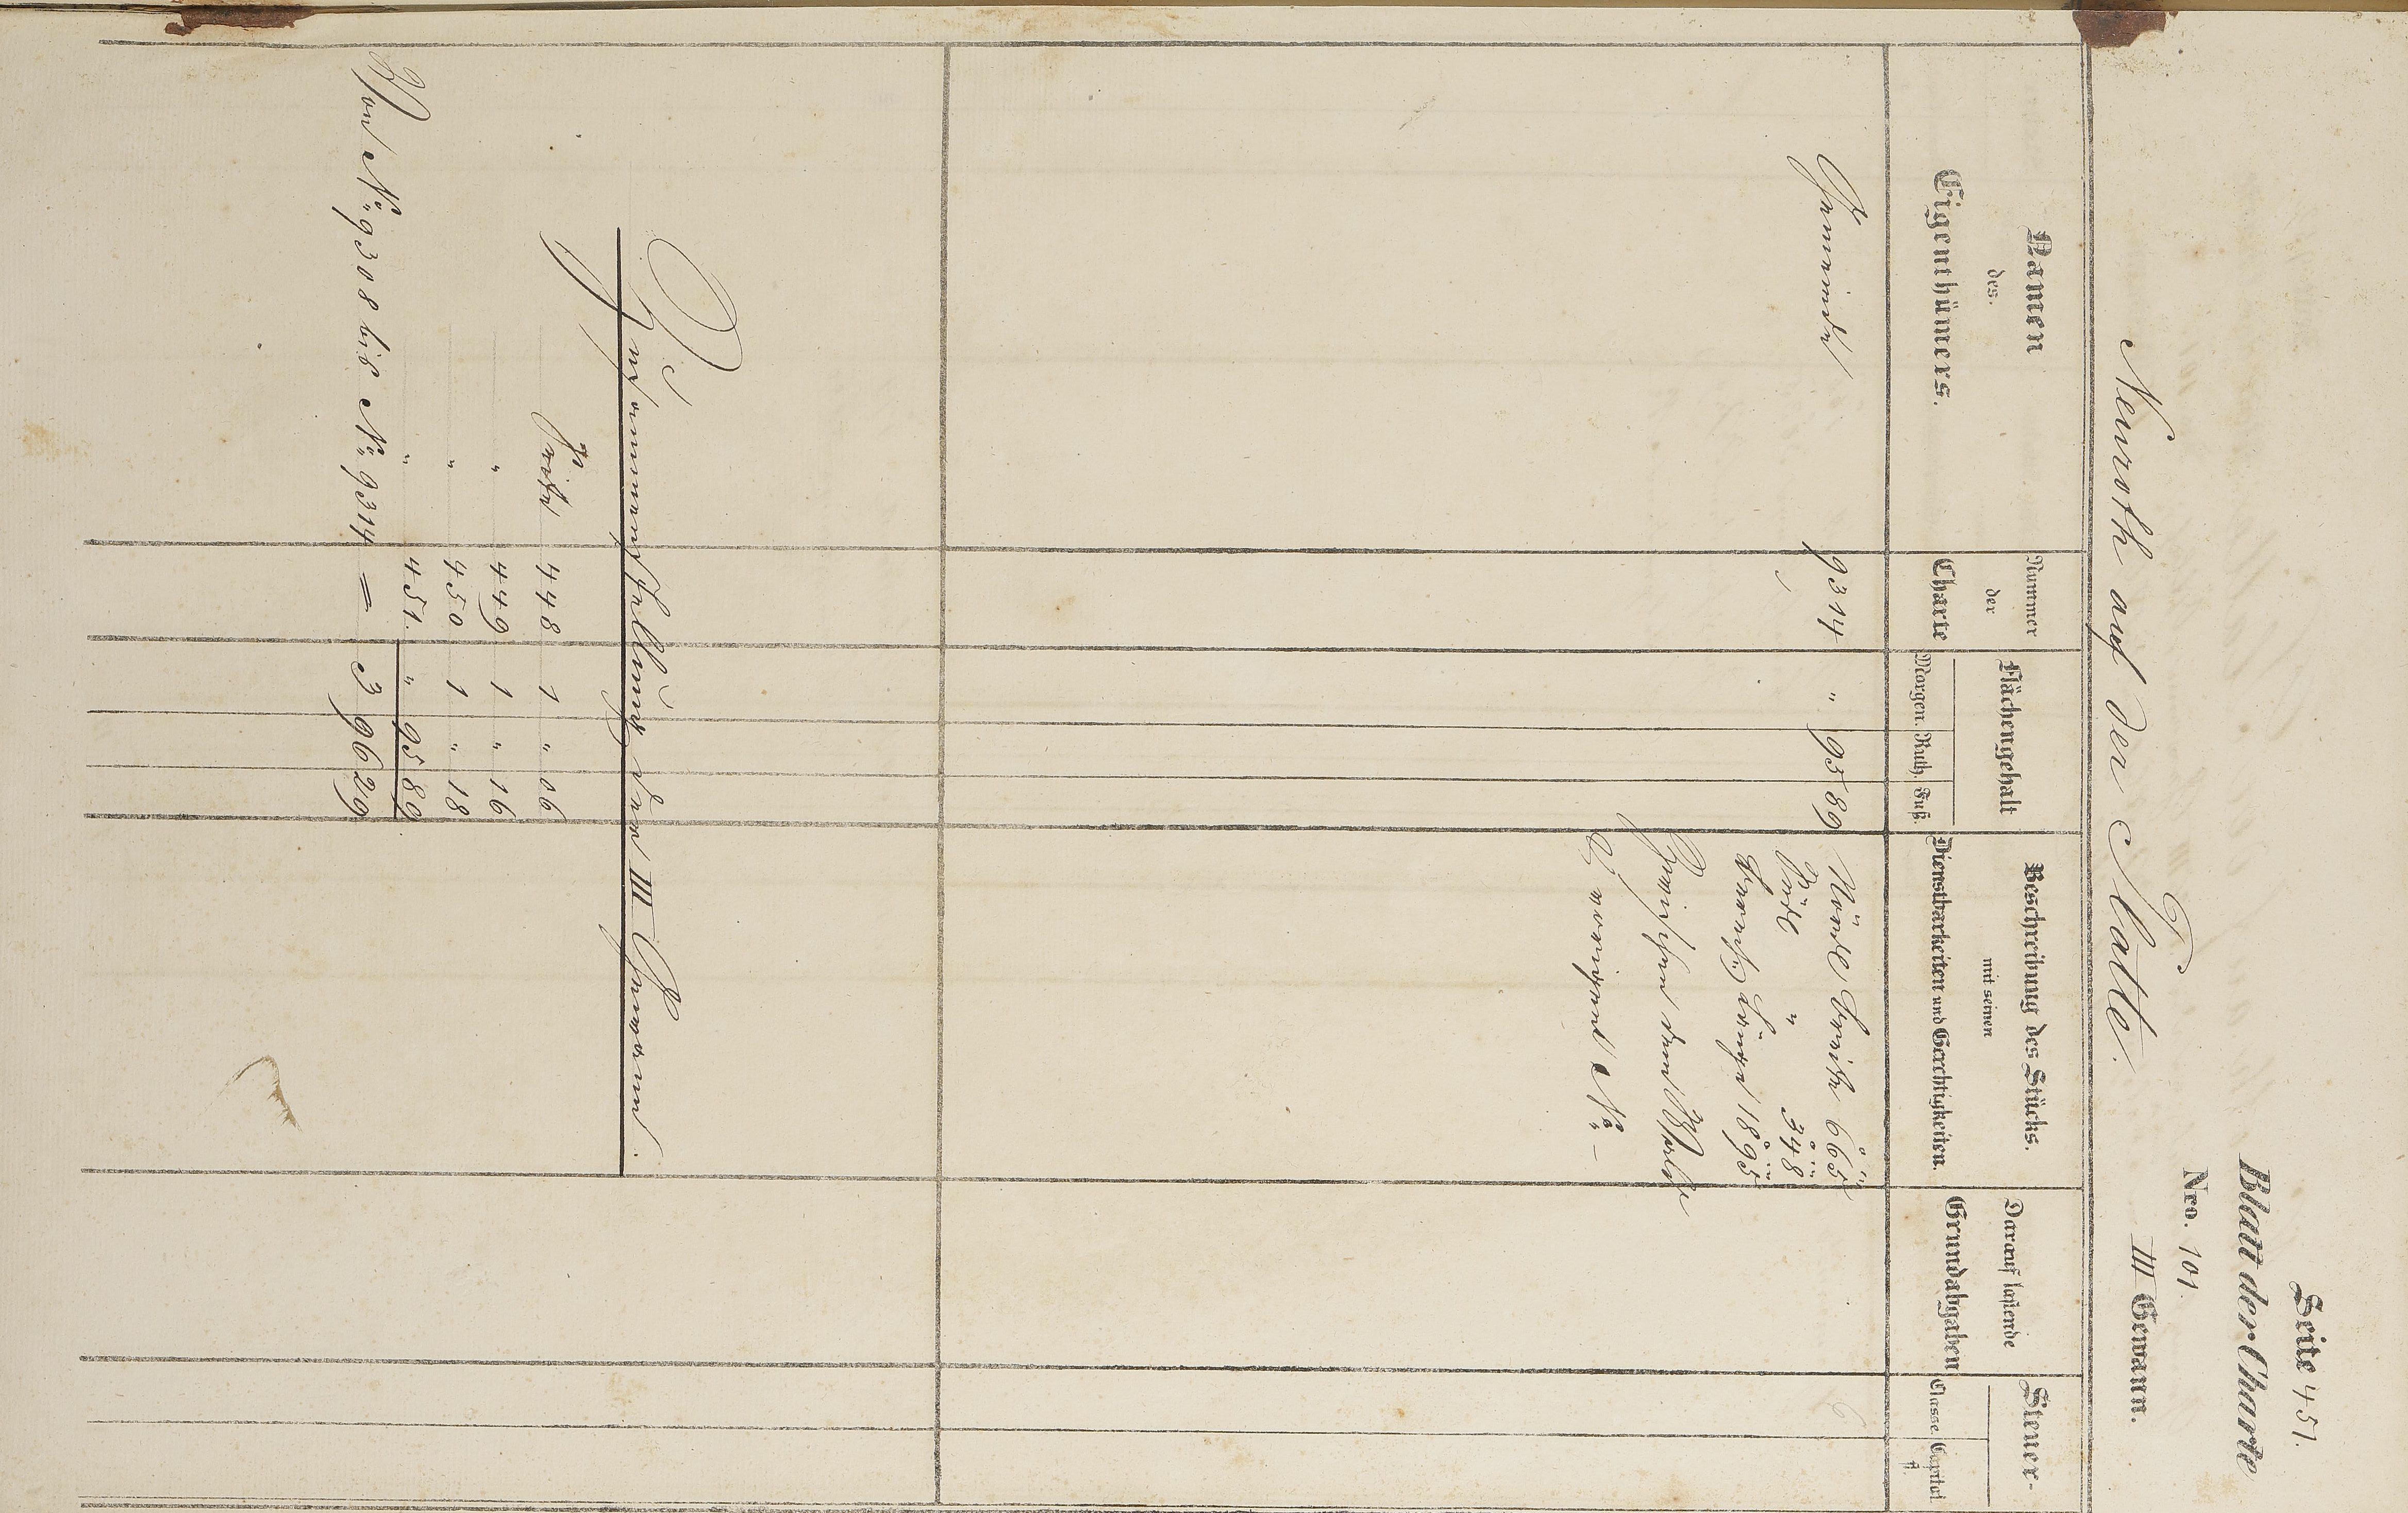 Seite 451.
Blatt der Charte
Nro. 101.
III Gewann.
Neuroth auf der Platte.
Namen des Eigenthümers.
Nummer der Charte
Flächengehalt
Morgen. Ruth. Fuß.
Beschreibung des Stücks.
mit seinen
Dienstbarkeiten und Gerechtigkeiten.
Darauf haftende Grundabgaben
Steuer-
Classe Capital fl.
Gemeinde 9314 " 95 89 Nördl Breite 6° 6' 5" 6
Südl " 3° 4' 8"
Länge 18° 9' 5"
Zwischen dem
N° –
Zusammenstellung der III Gewann.
Seite 448 1 " 06
" 449 1 " 16
" 450 1 " 18
" 451. " 95 89
Von N° 9308 bis N° 9314 = 3 96 29